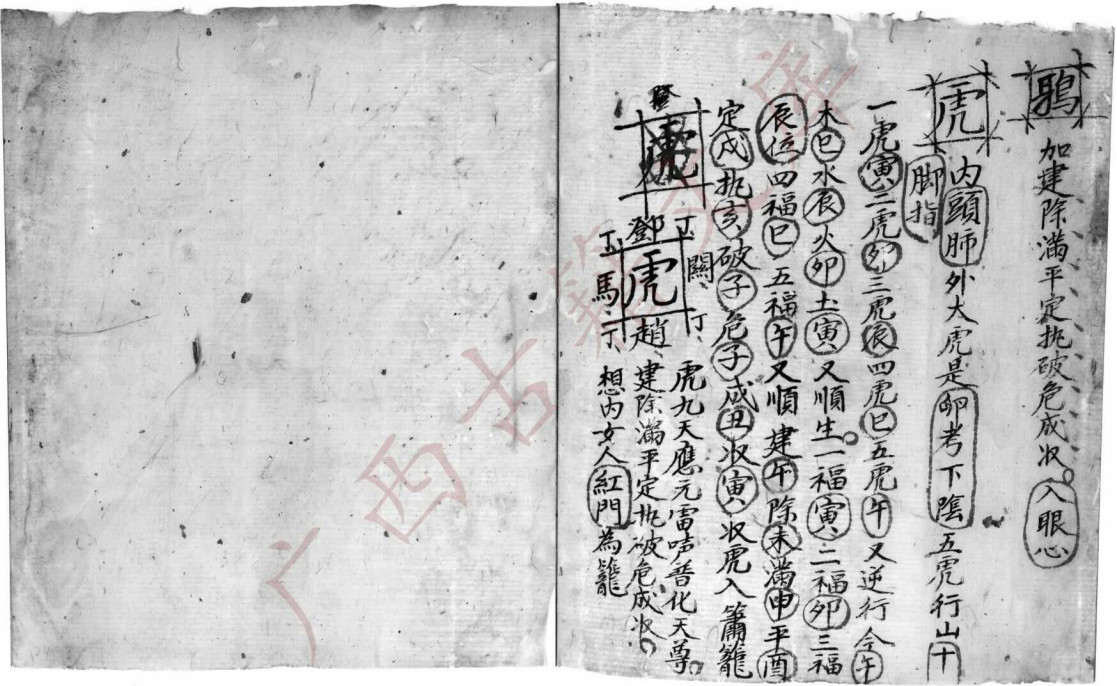 加建除滿平定执破危成收。入眼心
虎内頭肺外大虎是卵考下陰五虎行山十
脚指
一虎寅三虎卯三虎辰四虎巳五虎午又逆行今午
木巳水辰火卯土寅又順生。一福寅二福卯三福
辰位四福巳五福午又順建午除未滿申平酉
定戌执亥破子危子成丑收寅收虎入簫籠
登
鄧
關
虎
馬
趙
虎九天應元雷声普化天尊。
建除滿平定执破危成收。
想内女人紅門為籠
广西古籍文库